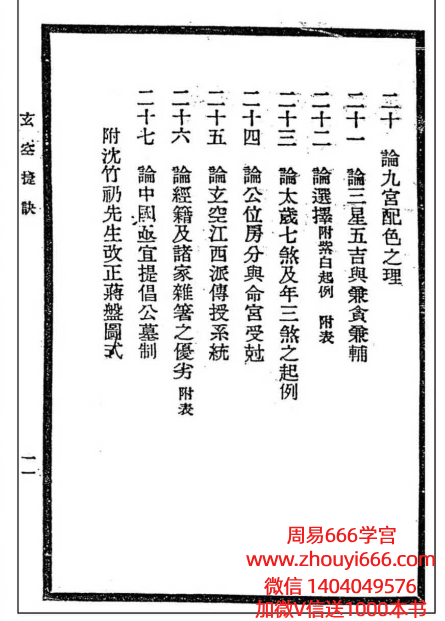 二十　論九宮配色之理
二十一　論三星五吉與兼貪兼輔
二十二　論選擇附紫白起例　附表
二十三　論太歲七煞及年三煞之起例
二十四　論公位房分與命宮受尅
二十五　論玄空江西派傳授系統
二十六　論經籍及諸家雜箸之優劣附表
二十七　論中國亟宜提倡公墓制
附沈竹礽先生改正蔣盤圖式
玄空捷訣
二
周易666学宫
www.zhouyi666.com
微信 1404049576
加微V信送1000本书